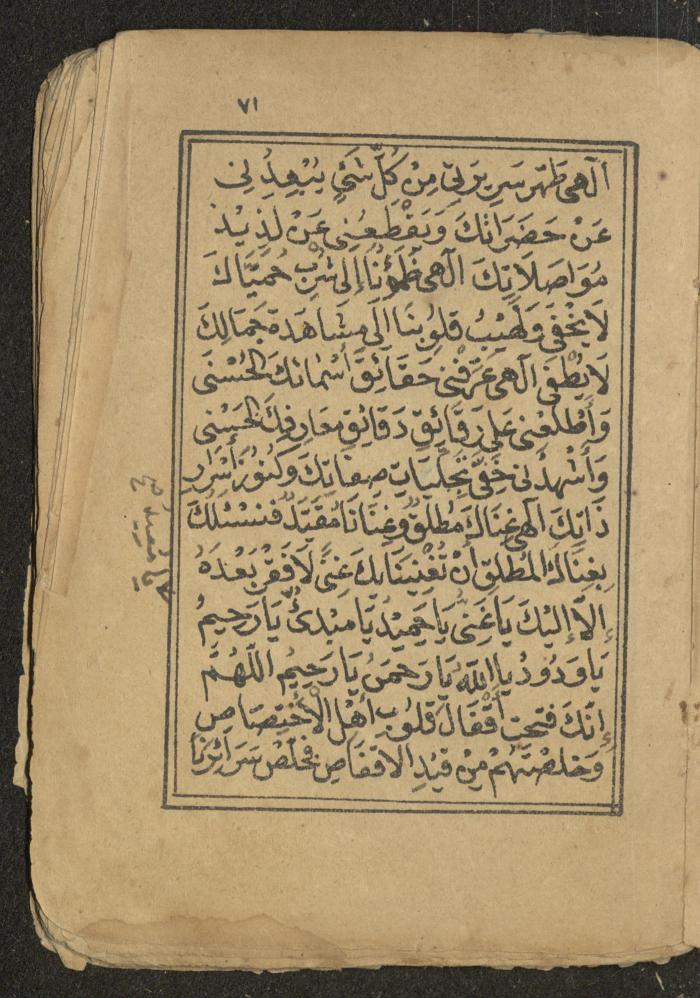 ٧١
الٓهى طَهّر سَرِيرَتِى مِنْ كُلِّ شَىْءٍ يُبْعِدُنِى
عَنْ حَضَرَاتِكَ وَيَقْطَعُنِى عَنْ لَذِيْذِ
مُوَاصَلَاتِكَ الٓهى ظَمَؤُنَا اِلى شُرْبِ حُمَيَّاكَ
لَا يَخْفَى وَلَهِيْبُ قلُوبِنَا اِلَى مشَاهَدَةِ جَمَالِكَ
لَا يُطْفى الٓهى عَرِّفْنى حَقَائِقَ اَسْمَائِكَ الحُسْنَى
وَاَطْلِعْنِى عَلى رَقَائِقِ دَقَائِقِ مَعَارِفِكَ الحُسْنى
وَاَشْهِدْنِى خَفِىَّ تَجَلّيَاتِ صِفَاتِكَ وَكنُوزَ اَسْرَارِ
ذَاتِكَ الٓهى غِنَاكَ مُطلَقٌ وغِنَانَا مُقَيَّدٌ فنسْئلُكَ
بِغِنَاكَ المُطْلَقِ اَنْ تُغْنِيَنَا بِكَ غِنىً لَا فَقْرَ بَعْدَهُ
اِلَّا اِلَيْكَ يَا غَنِىُّ يَا حَمِيْدُ يَا مبْدِئُ يَا رَحِيمُ
يَا وَدُودُ يا اَللّٰهُ يَا رَحمٰنُ يَا رَحِيْمُ اَللّٰهُمَّ
اِنَّكَ فتَحْتَ اَقْفَالَ قلُوبِ اَهْلِ الْاِخْتِصَاصِ
وَخلَصْتَهُمْ مِنْ قَيْدِ الاقفَاصِ فخَلّصْ سَرَائِرَنَا